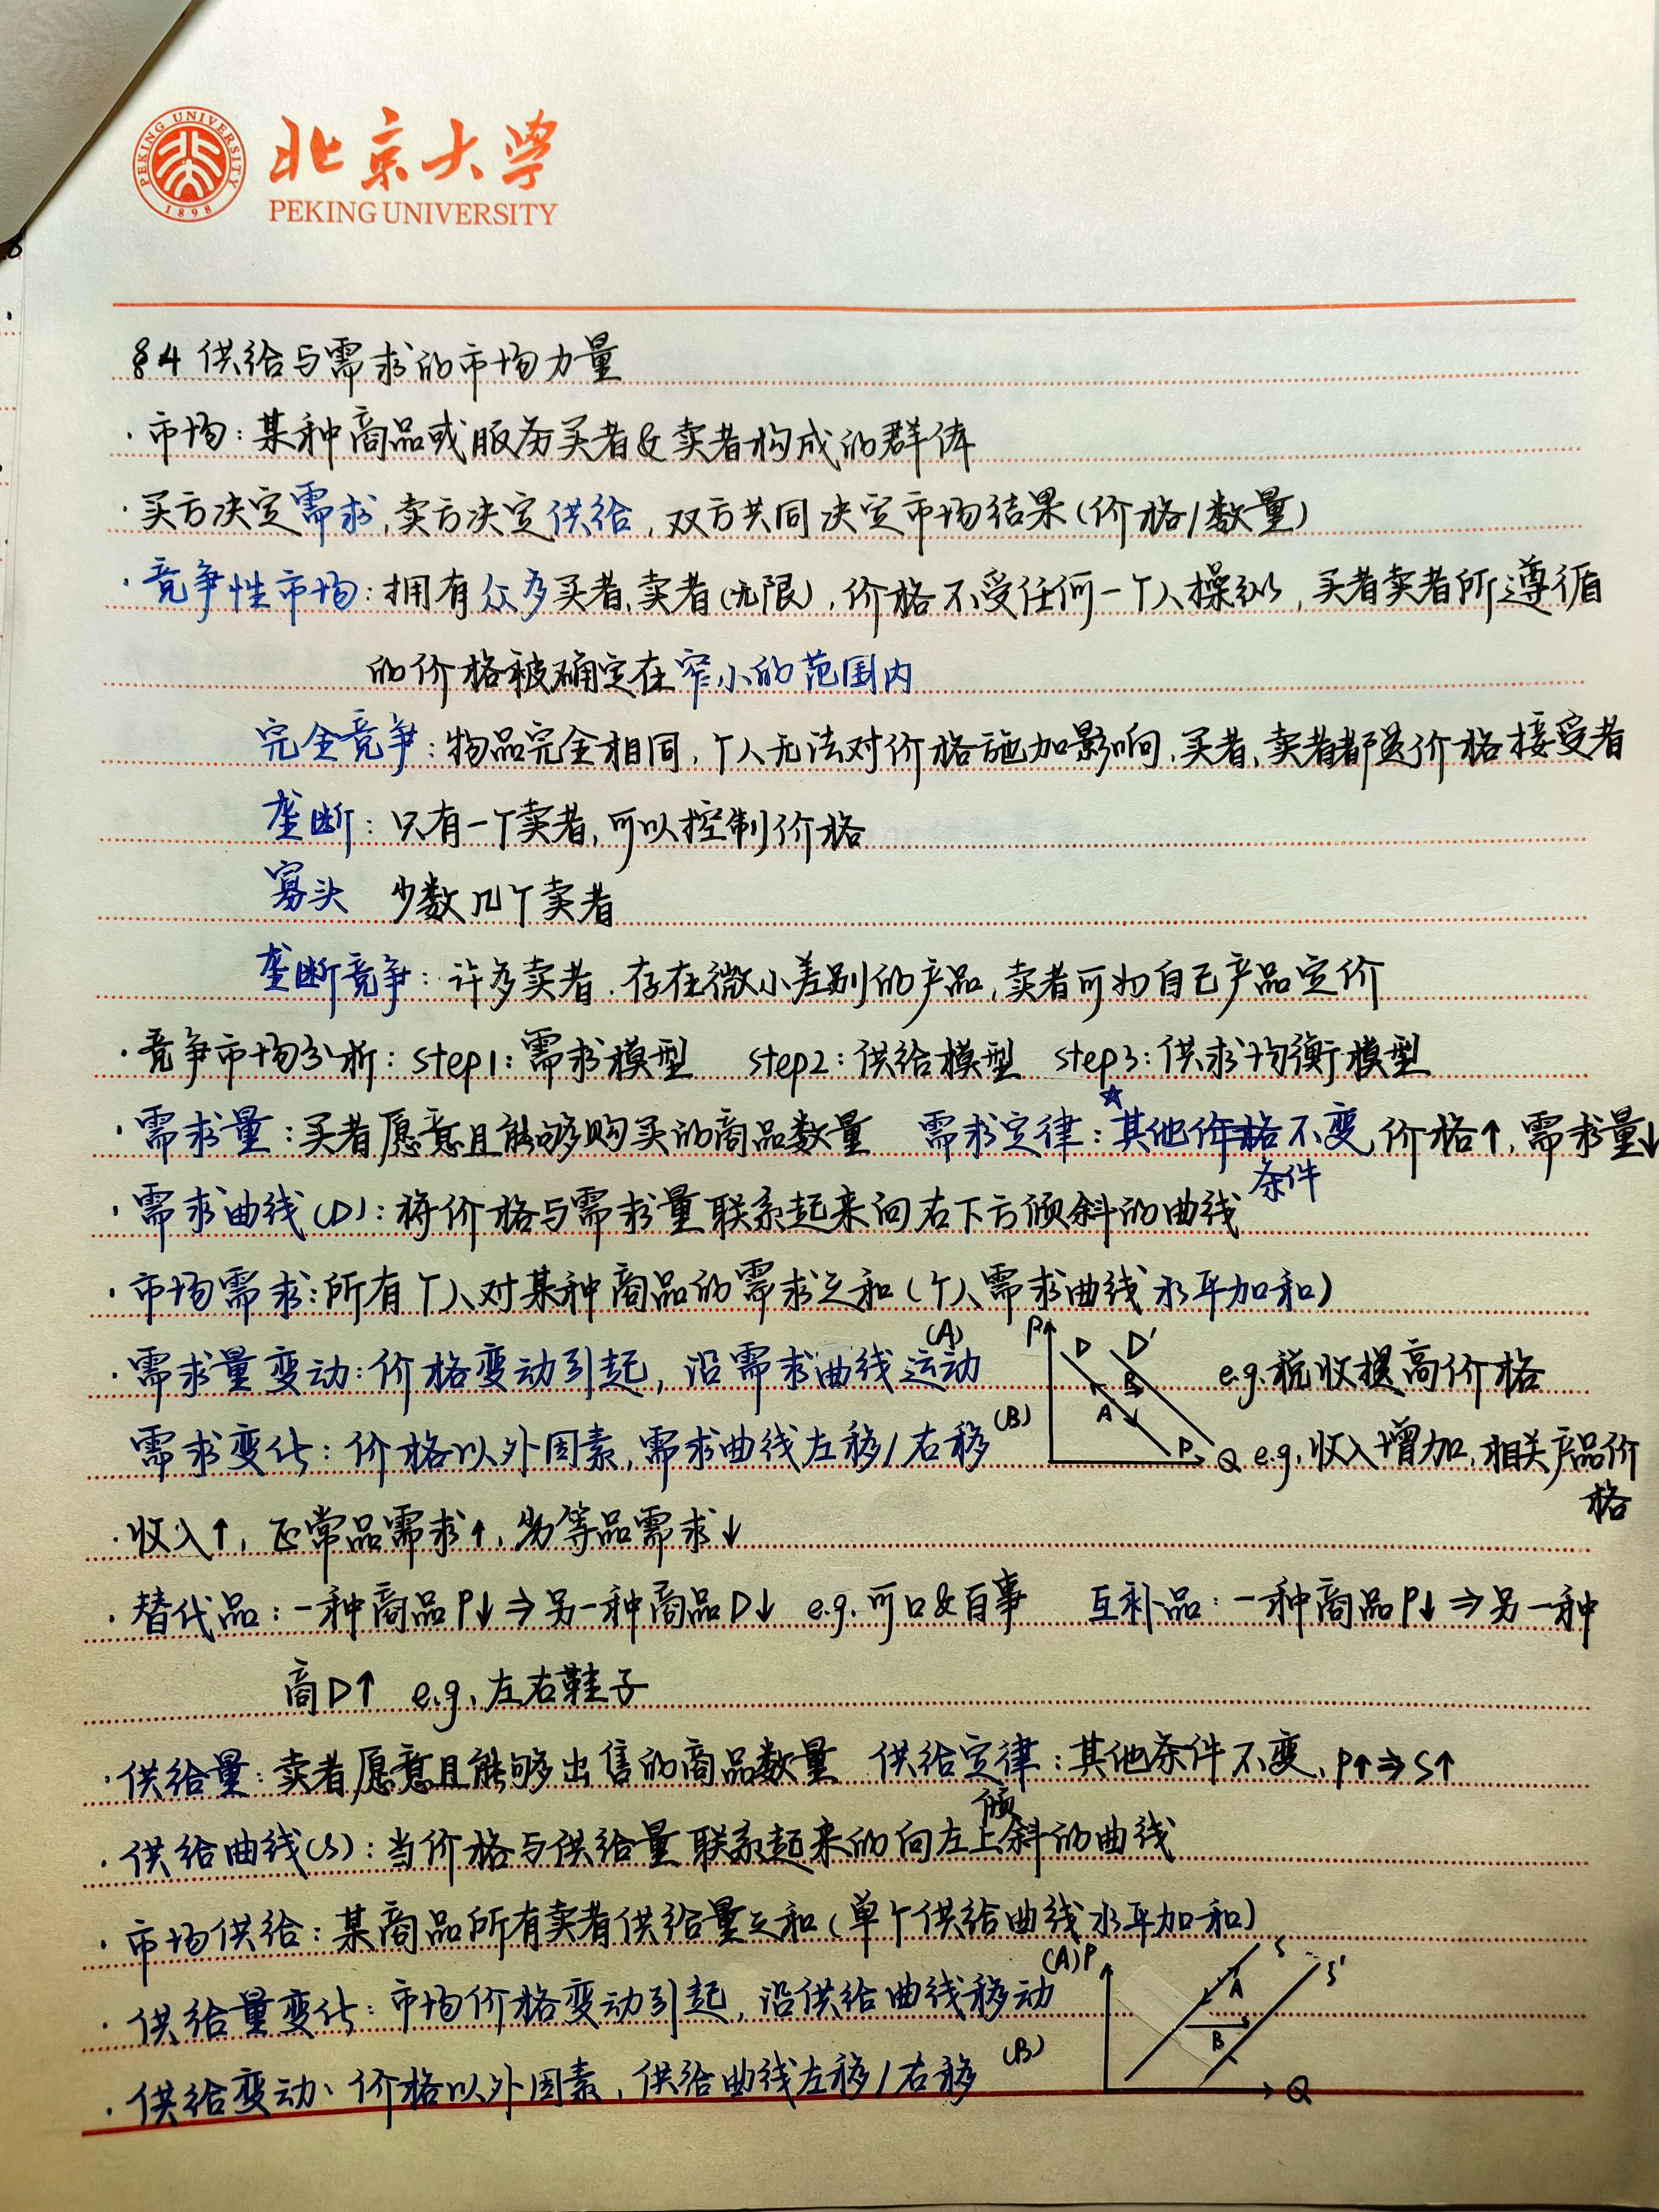 PEKING UNIVERSITY
1898
北京大学
PEKING UNIVERSITY
§4 供给与需求的市场力量
·市场：某种商品或服务买者&卖者构成的群体
·买方决定需求，卖方决定供给，双方共同决定市场结果（价格/数量）
·竞争性市场：拥有众多买者、卖者（无限），价格不受任何一个人操纵，买者卖者所遵循
的价格被确定在窄小的范围内
完全竞争：物品完全相同，个人无法对价格施加影响，买者、卖者都是价格接受者
垄断：只有一个卖者，可以控制价格
寡头 少数几个卖者
垄断竞争：许多卖者，存在微小差别的产品，卖者可为自己产品定价
·竞争市场分析：step1：需求模型 step2：供给模型 step3：供求均衡模型
☆
·需求量：买者愿意且能够购买的商品数量 需求定律：其他价格不变，价格↑，需求量↓
条件
·需求曲线（D）：将价格与需求量联系起来向右下方倾斜的曲线
·市场需求：所有个人对某种商品的需求之和（个人需求曲线水平加和）
·需求量变动：价格变动引起，沿需求曲线运动 (A)
P D D' B A D Q
e.g.税收提高价格
需求变化：价格以外因素，需求曲线左移/右移 (B)
e.g.收入增加，相关产品价
格
·收入↑，正常品需求↑，劣等品需求↓
·替代品：一种商品P↓⇒另一种商品D↓ e.g.可口&百事 互补品：一种商品P↓⇒另一种
商D↑ e.g.左右鞋子
·供给量：卖者愿意且能够出售的商品数量 供给定律：其他条件不变，P↑⇒S↑
倾
·供给曲线(S)：当价格与供给量联系起来的向左上斜的曲线
·市场供给：某商品所有卖者供给量之和（单个供给曲线水平加和）
·供给量变化：市场价格变动引起，沿供给曲线移动 (A)
P S S' A B Q
·供给变动、价格以外因素，供给曲线左移/右移 (B)